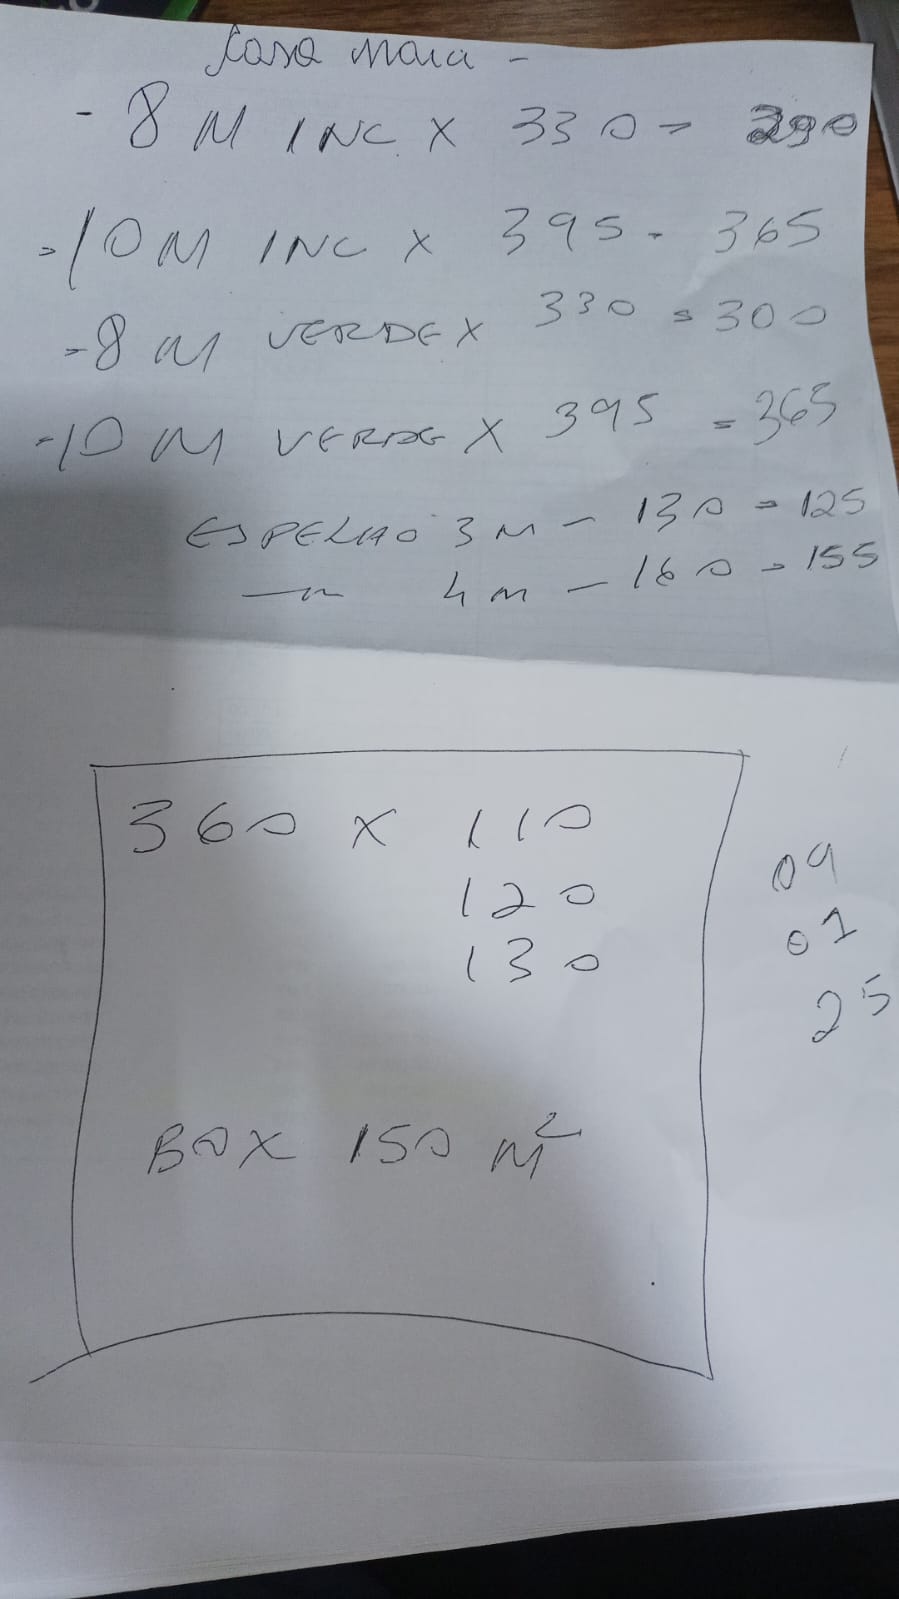 Casa Maia -
- 8 M INC. X 330 = 290
- 10 M INC X 395 - 365
- 8 M VERDE X 330 = 300
- 10 M VERDE X 395 = 365
ESPELHO 3 M - 130 = 125
-"- 4 M - 160 = 155
360 X 110
120
130
BOX 150 M²
09
01
25